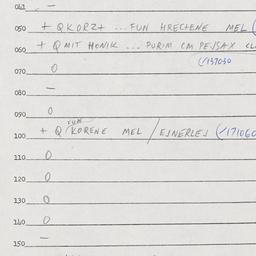 041 —
050 + QKORZT ... FUN HRECHENE MEL (
060 + Q MIT HONIK ... PURIM OM PEJSAX CL
(/137030
070 0
080 —
090 0
FUN
100 + Q KORENE MEL / EJNERLEJ (/171060
110 0
120 0
130 0
140 0
150 —